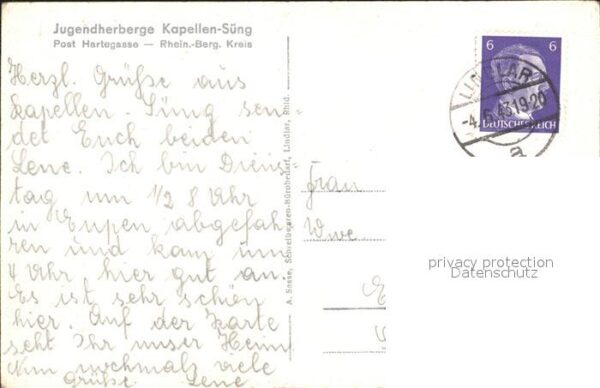 Jugendherberge Kapellen-Süng
Post Hartegasse — Rhein.-Berg. Kreis
Herzl. Grüße aus
Kapellen. Süng sen-
det Euch beiden
Lene. Ich bin Diens-
tag um 1/2 8 Uhr
in Eupen abgefah
ren und kam um
4 Uhr hier gut an.
Es ist sehr schön
hier. Auf der Karte
seht Ihr unser Heim
Nun nochmals viele
Grüße Lene
A. Sasse, Schreibwaren-Bürobedarf, Lindlar, Rhld.
6 6
DEUTSCHES REICH
LINDLAR
-4.5.43.19-20
a
Frau
Wwe.
E
privacy protection
Datenschutz